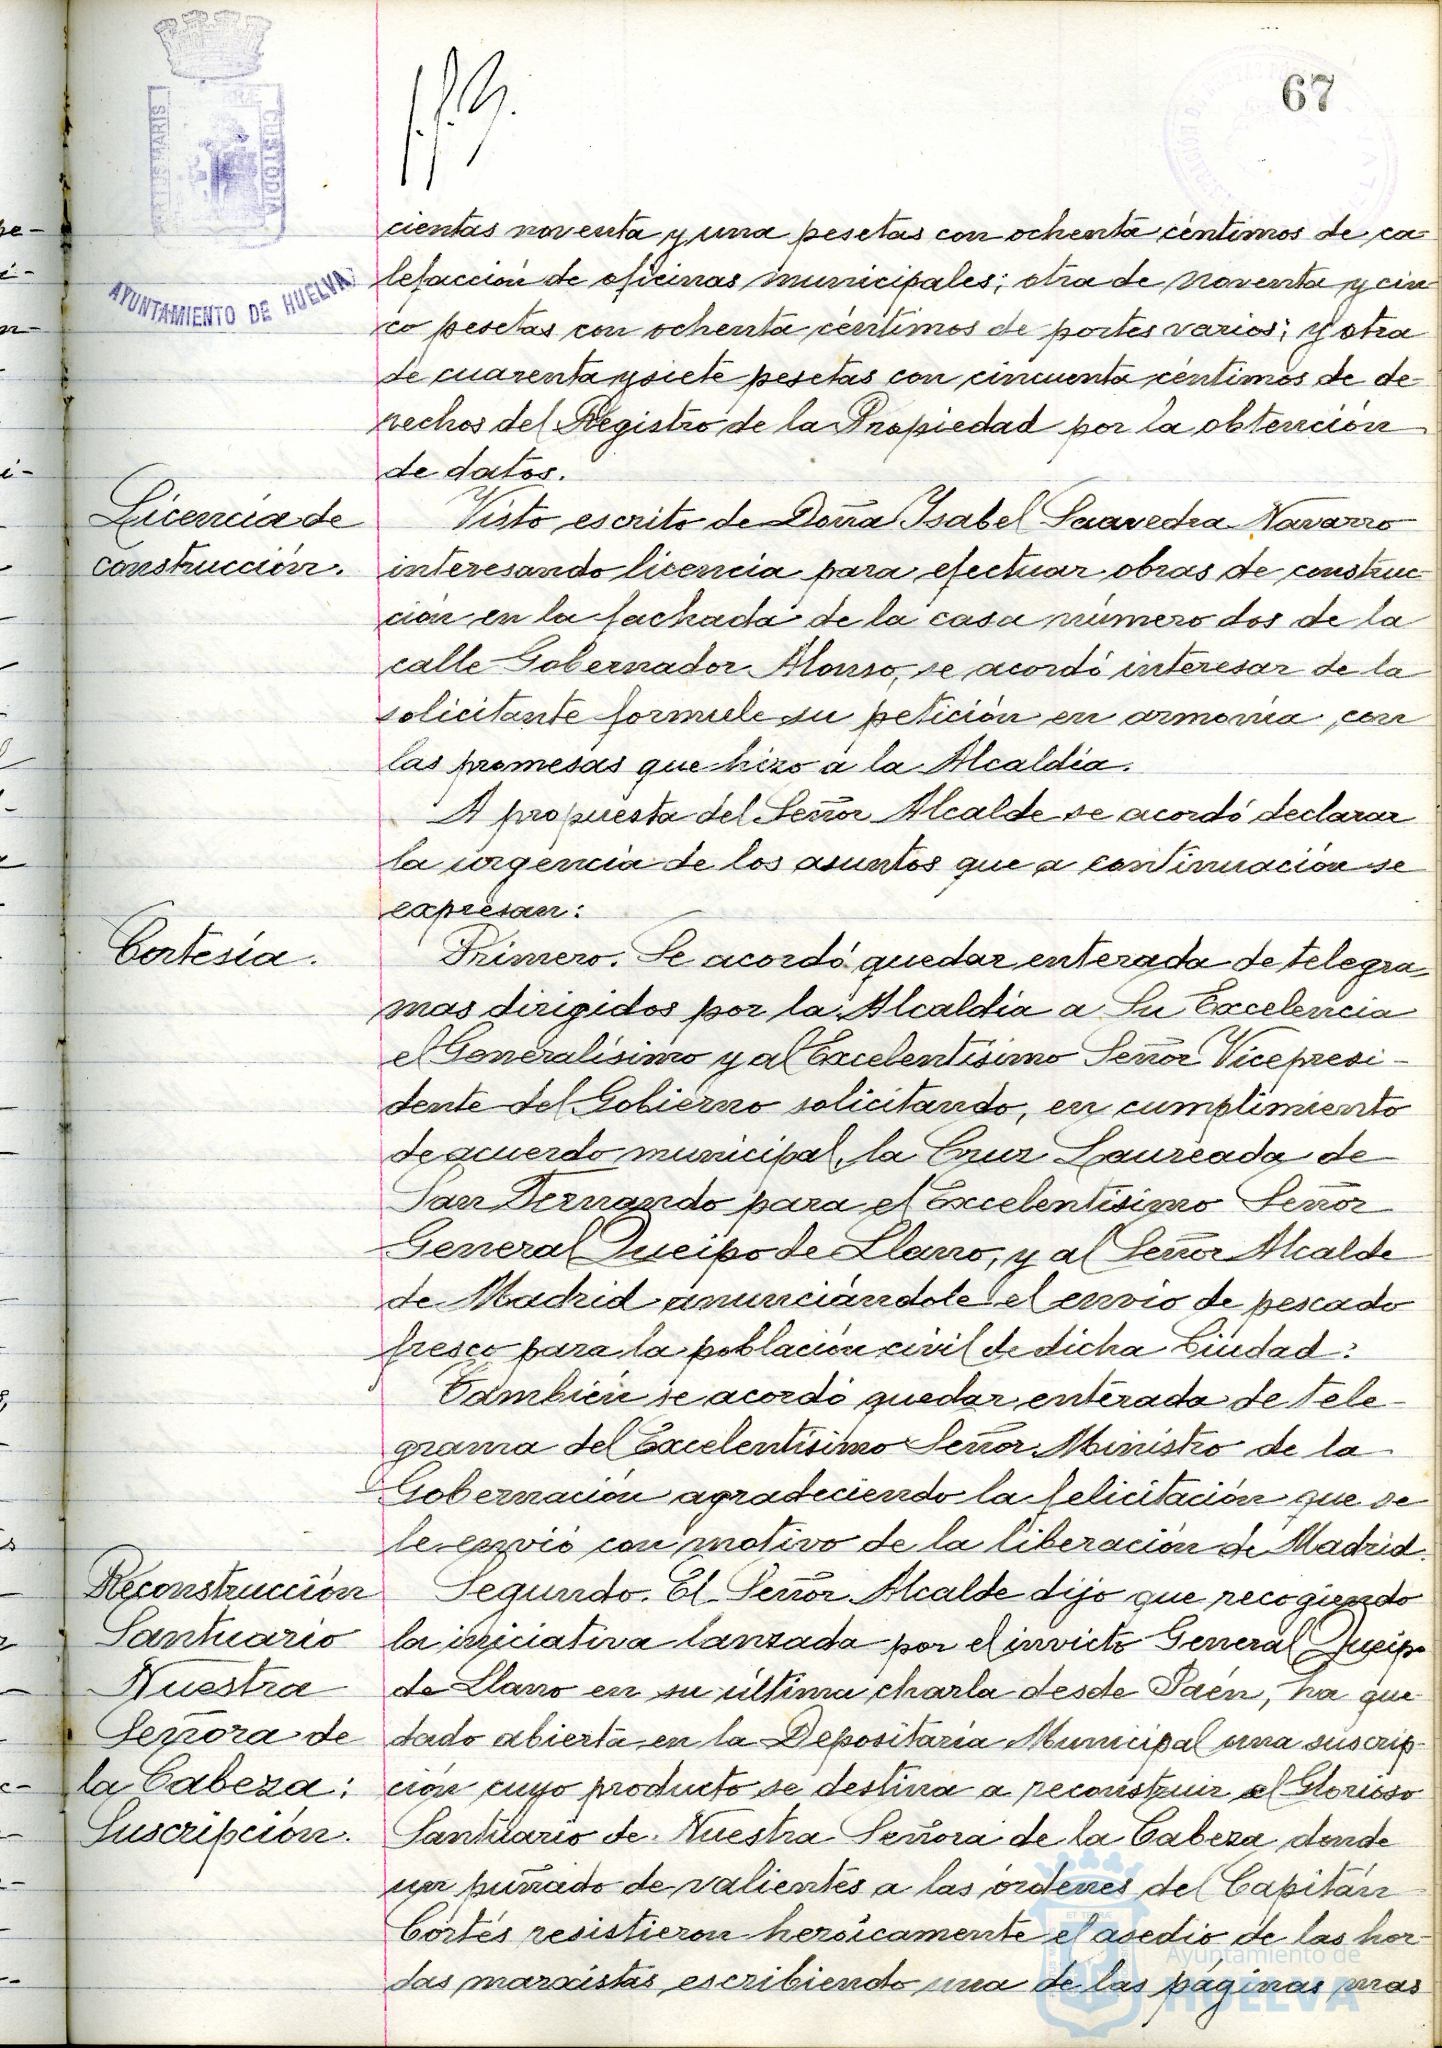 67
PORTUS MARIS
CUSTODIA
AYUNTAMIENTO DE HUELVA
cientas noventa y una pesetas con ochenta céntimos de ca-
lefacción de oficinas municipales; otra de noventa y cin-
co pesetas con ochenta céntimos de portes varios; y otra
de cuarenta y siete pesetas con cincuenta céntimos de de-
rechos del Registro de la Propiedad por la obtención
de datos.
Licencia de
construcción.
Visto escrito de Doña Isabel Saavedra Navarro
interesando licencia para efectuar obras de construc-
ción en la fachada de la casa número dos de la
calle Gobernador Alonso, se acordó interesar de la
solicitante formule su petición en armonía con
las promesas que hizo a la Alcaldía.
A propuesta del Señor Alcalde se acordó declarar
la urgencia de los asuntos que a continuación se
expresan:
Cortesía.
Primero. Se acordó quedar enterada de telegra-
mas dirigidos por la Alcaldía a Su Excelencia
el Generalísimo y al Excelentísimo Señor Vicepresi-
dente del Gobierno solicitando, en cumplimiento
de acuerdo municipal, la Cruz Laureada de
San Fernando para el Excelentísimo Señor
General Queipo de Llano, y al Señor Alcalde
de Madrid anunciándole el envío de pescado
fresco para la población civil de dicha Ciudad.
También se acordó quedar enterada de tele-
grama del Excelentísimo Señor Ministro de la
Gobernación agradeciendo la felicitación que se
le envió con motivo de la liberación de Madrid.
Reconstrucción
Santuario
Nuestra
Señora de
la Cabeza:
Suscripción.
Segundo. El Señor Alcalde dijo que recogiendo
la iniciativa lanzada por el invicto General Queipo
de Llano en su última charla desde Jaén, ha que-
dado abierta en la Depositaría Municipal una suscrip-
ción cuyo producto se destina a reconstruir el Glorioso
Santuario de Nuestra Señora de la Cabeza donde
un puñado de valientes a las órdenes del Capitán
Cortés resistieron heroicamente el asedio de las hor-
das marxistas escribiendo una de las páginas mas
Ayuntamiento de
HUELVA